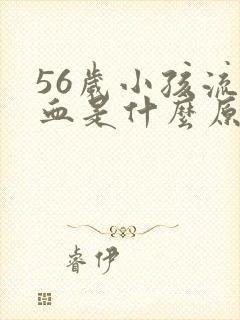 56歲小孩流
血是什麼原
睿伊